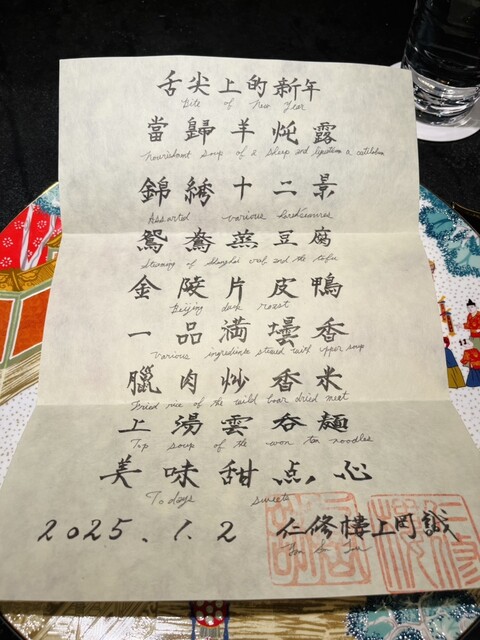 舌尖上的新年
Bite of New Year
當歸羊炖露
Nourishment soup of a sheep and
錦綉十二景
Assorted various
鴛鴦蒸豆腐
Steaming of Shanghai crab and the tofu
金陵片皮鴨
Beijing duck roast
一品満壜香
Various ingredients steamed with upper soup
臘肉炒香米
Fried rice of the wild boar dried meat
上湯雲呑麺
Top soup of the won ton noodles
美味甜点心
Todays sweets
2025.1.2 仁修樓上岡誠